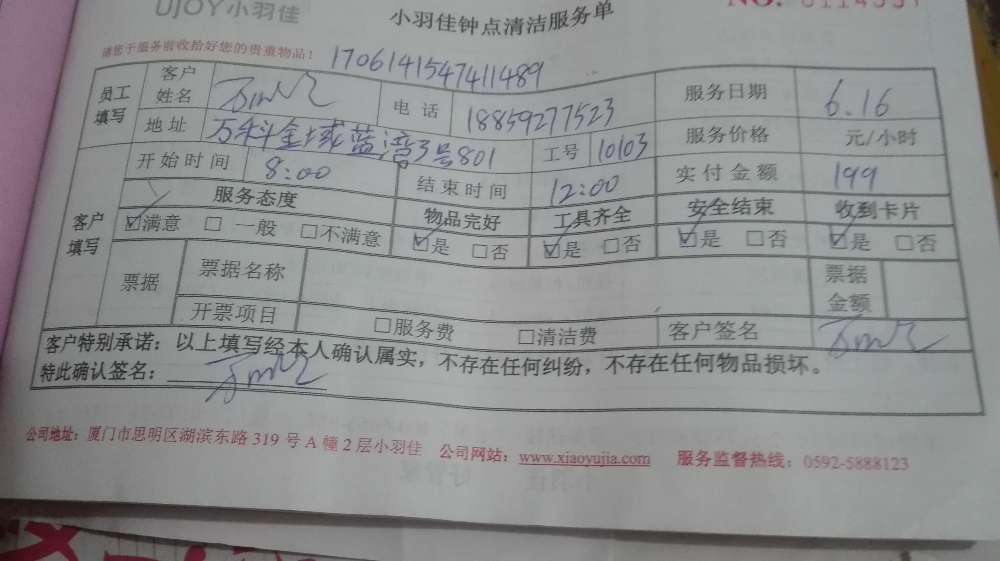 UJOY小羽佳
小羽佳钟点清洁服务单
NO.
请您于服务前收拾好您的贵重物品！
1706141547411489
员工填写 客户姓名 电话 18859277523 服务日期 6.16
地址 万科金域蓝湾3号801 工号 10103 服务价格 元/小时
客户填写 开始时间 8:00 结束时间 12:00 实付金额 199
服务态度 物品完好 工具齐全 安全结束 收到卡片
☑满意 □一般 □不满意 ☑是 □否 ☑是 □否 ☑是 □否 ☑是 □否
票据 票据名称 票据金额
开票项目 □服务费 □清洁费 客户签名
客户特别承诺：以上填写经本人确认属实，不存在任何纠纷，不存在任何物品损坏。
特此确认签名：
公司地址：厦门市思明区湖滨东路319号A幢2层小羽佳 公司网站：www.xiaoyujia.com 服务监督热线：0592-5888123